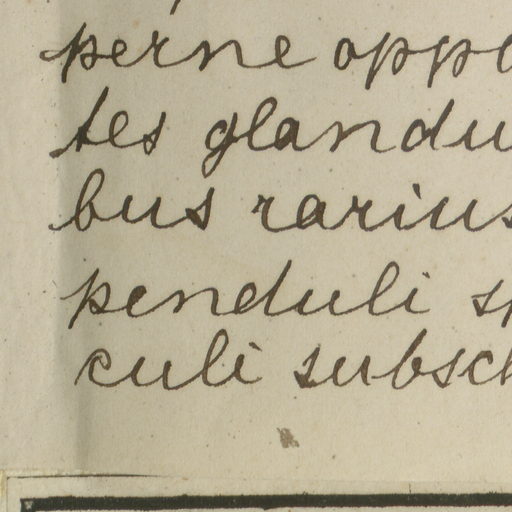 perne oppo
tes glandu
bus rarius
penduli sp
culi subsch